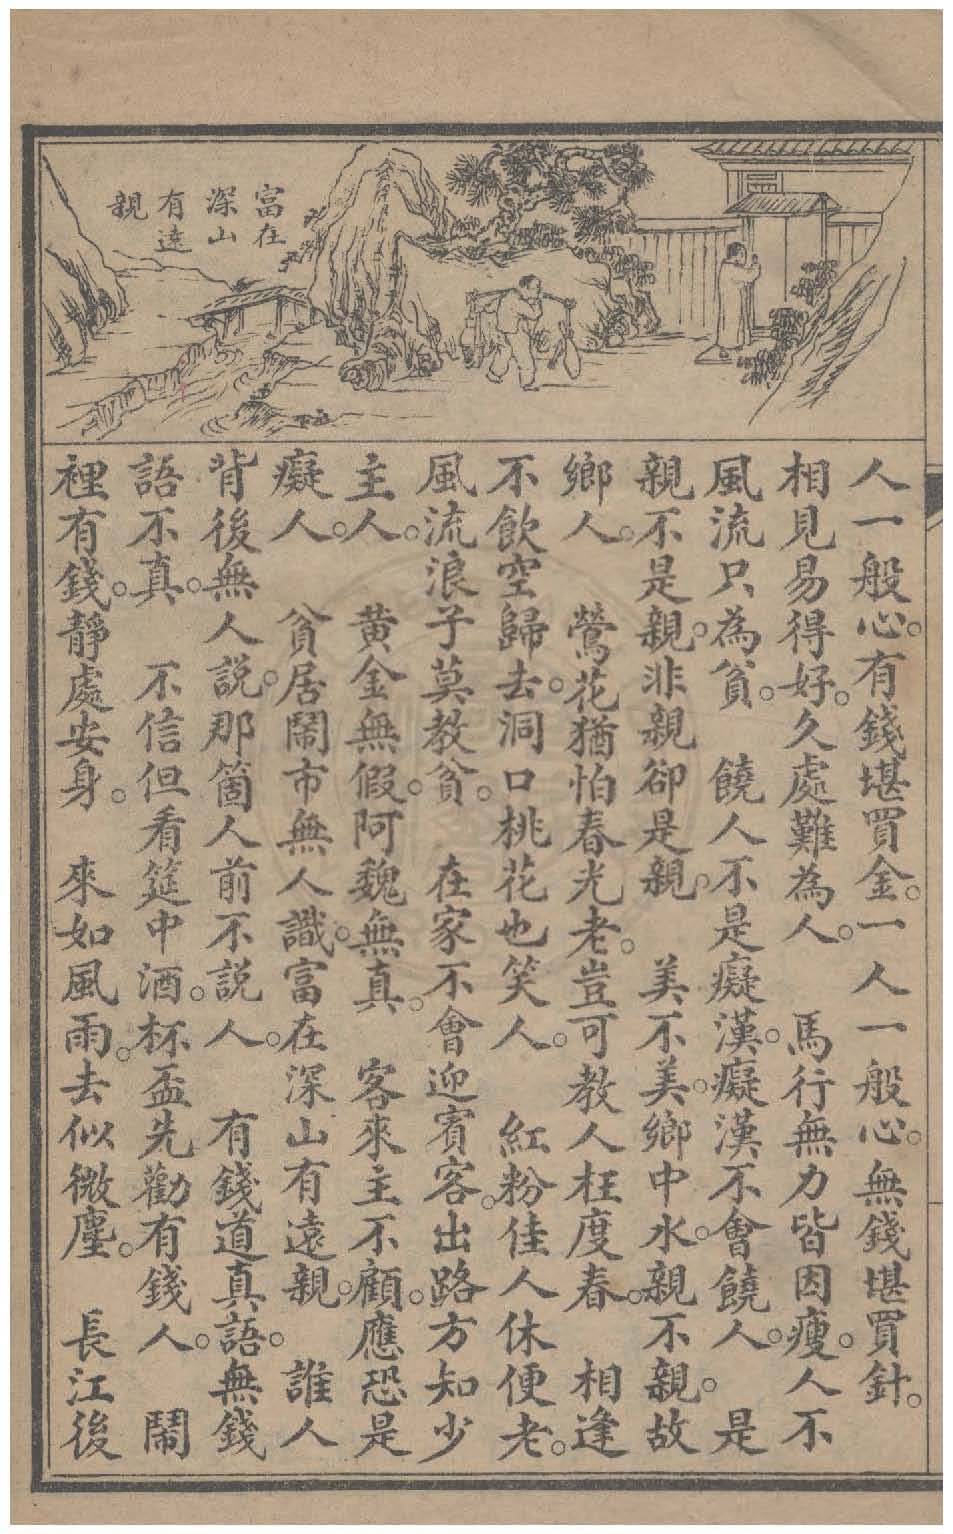 富在
深山
有遠
親
人一般心。有錢堪買金。一人一般心。無錢堪買針。
相見易得好。久處難為人。 馬行無力皆因瘦。人不
風流只為貧。 饒人不是癡漢。癡漢不會饒人。 是
親不是親。非親卻是親。 美不美。鄉中水。親不親。故
鄉人。 鶯花猶怕春光老。豈可教人枉度春。 相逢
不飲空歸去。洞口桃花也笑人。 紅粉佳人休便老。
風流浪子莫教貧。 在家不會迎賓客。出路方知少
主人。 黄金無假。阿魏無真。 客來主不顧。應恐是
癡人。 貧居鬧市無人識。富在深山有遠親。 誰人
背後無人説。那箇人前不説人。 有錢道真語。無錢
語不真。 不信但看筵中酒。杯盃先勸有錢人。 鬧
裡有錢。靜處安身。 來如風雨。去似微塵。 長江後